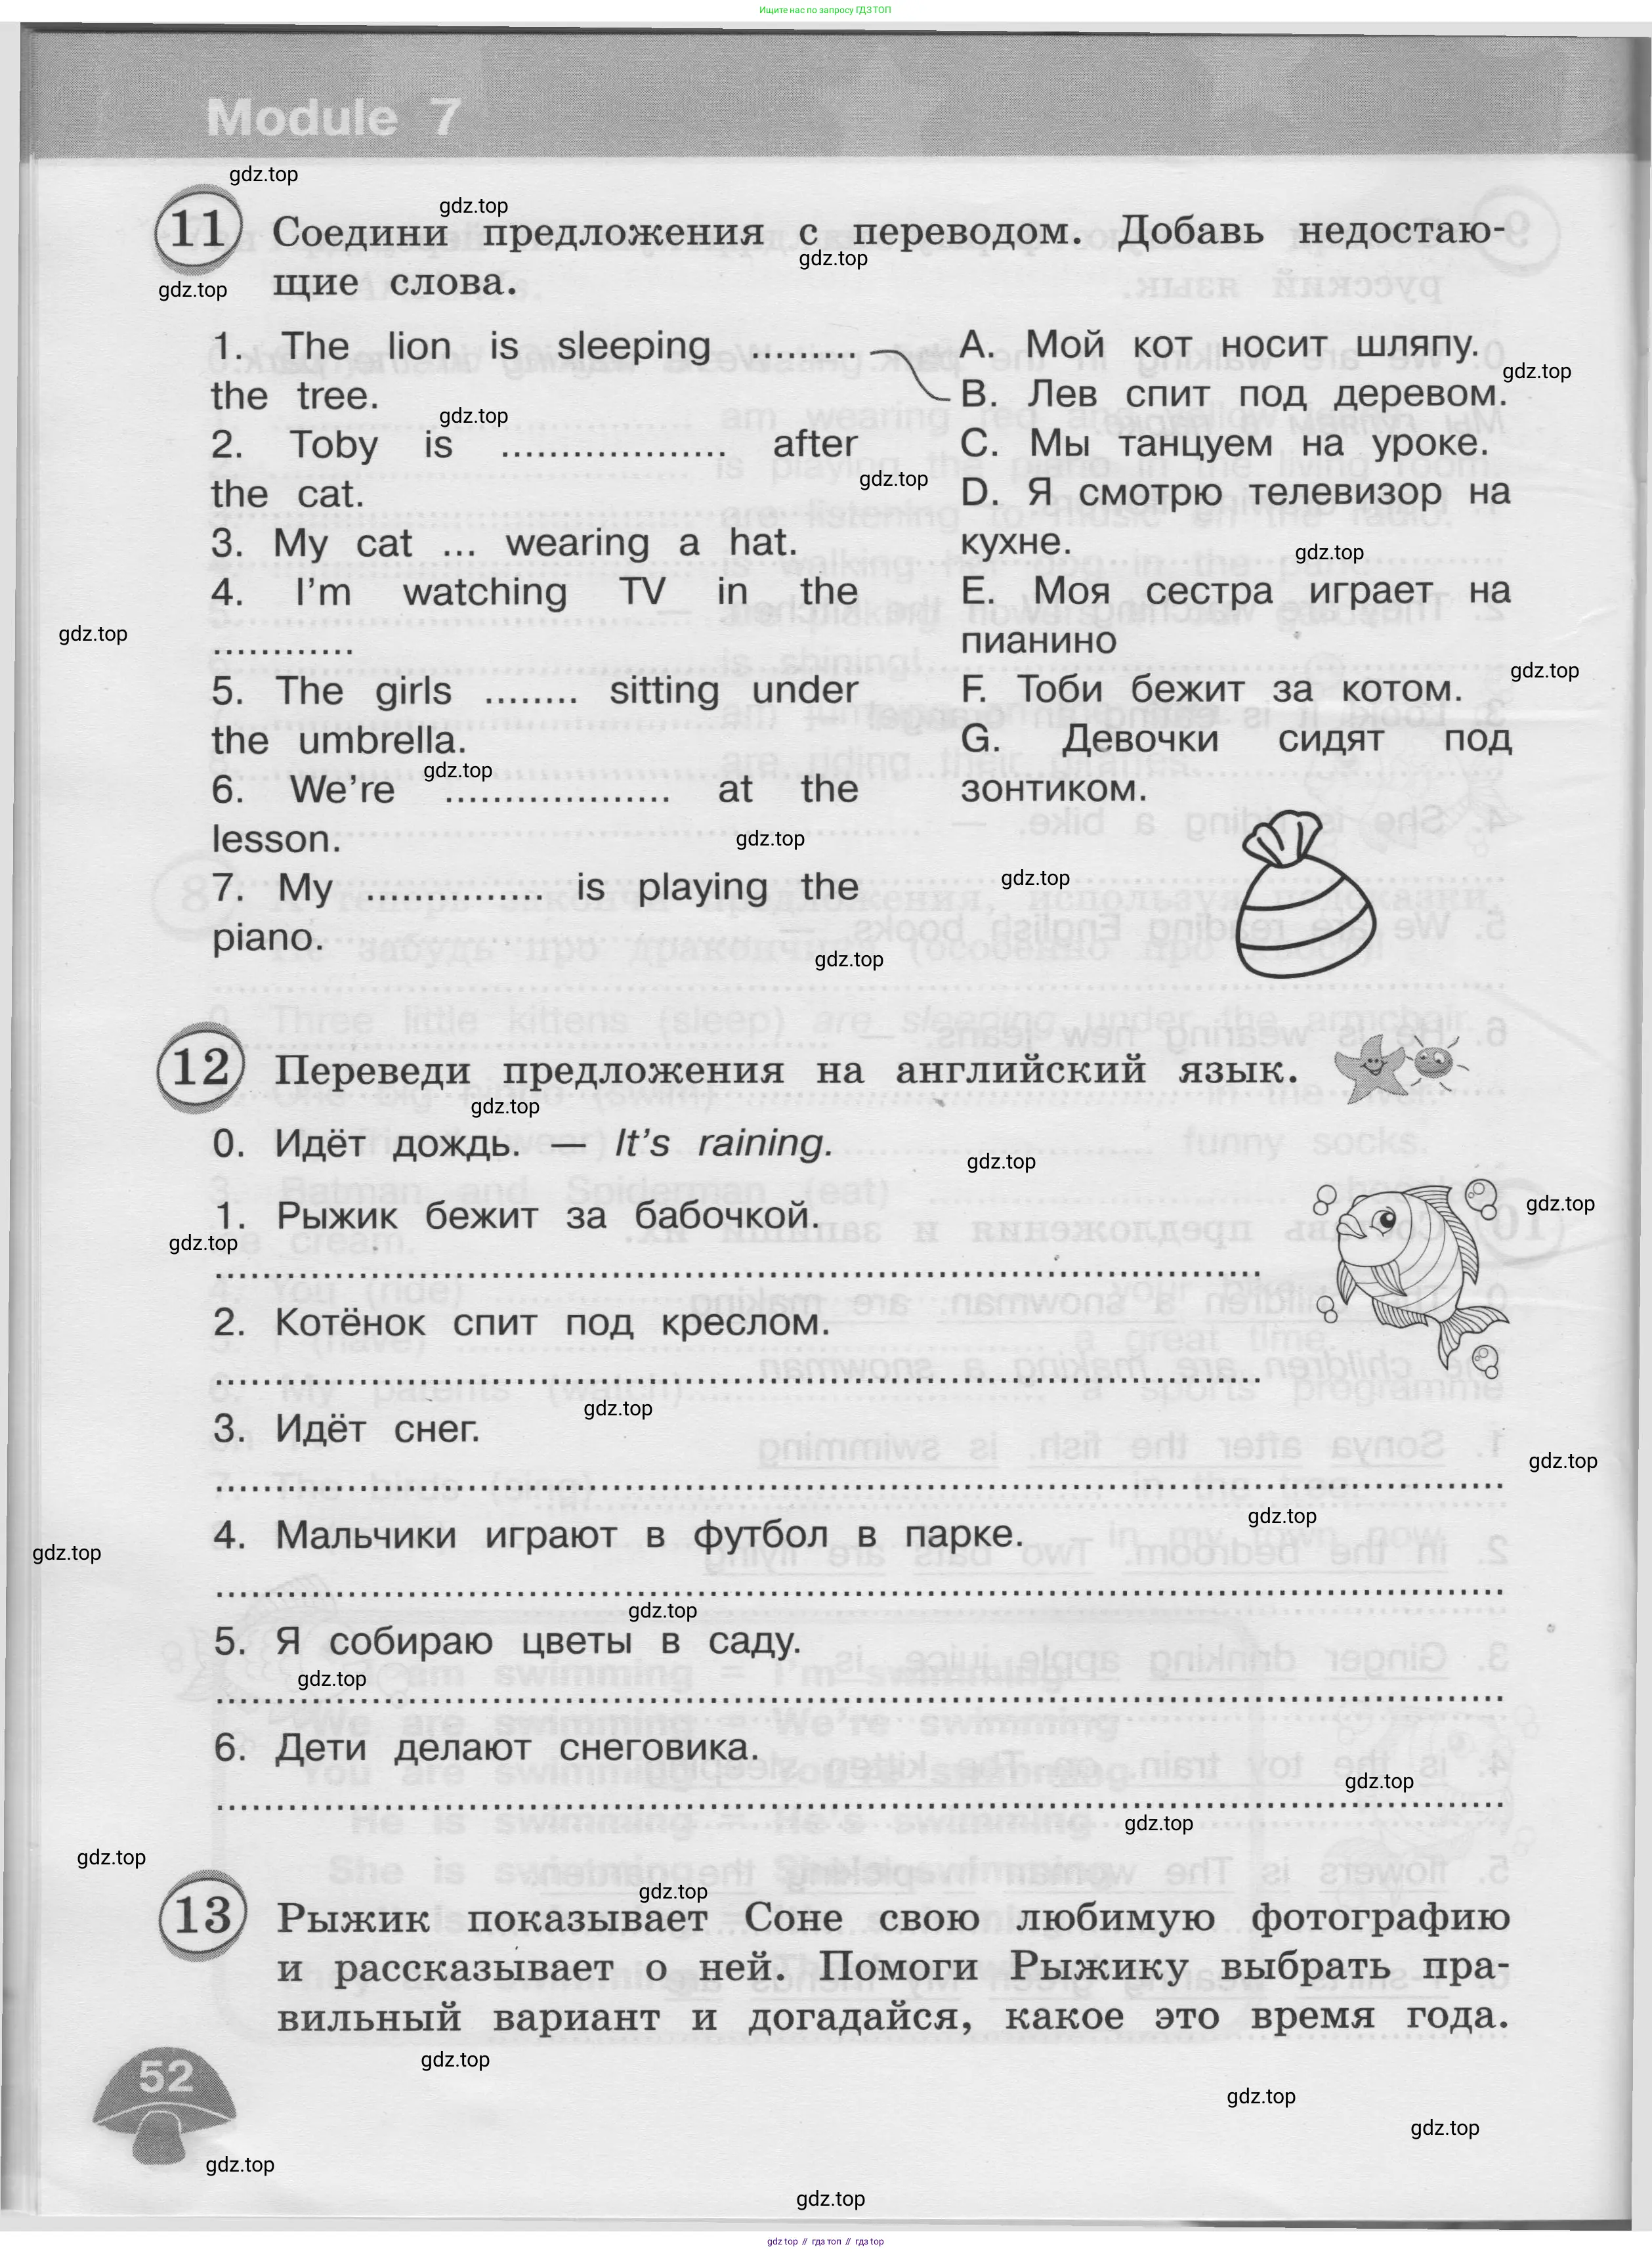 Ищите нас по запросу ГДЗ ТОП
Module 7
gdz.top
gdz.top
11 Соедини предложения с переводом. Добавь недостаю-
gdz.top
щие слова.
gdz.top
1. The lion is sleeping .........
the tree.
gdz.top
2. Toby is ................... after
the cat.
3. My cat ... wearing a hat.
4. I'm watching TV in the
............
gdz.top
5. The girls ........ sitting under
the umbrella.
gdz.top
6. We're ................... at the
lesson.
7. My ............... is playing the
piano.
A. Мой кот носит шляпу.
gdz.top
B. Лев спит под деревом.
C. Мы танцуем на уроке.
gdz.top
D. Я смотрю телевизор на
кухне.
gdz.top
E. Моя сестра играет на
пианино
gdz.top
F. Тоби бежит за котом.
G. Девочки сидят под
зонтиком.
gdz.top
gdz.top
gdz.top
12 Переведи предложения на английский язык.
gdz.top
0. Идёт дождь. — It's raining.
gdz.top
1. Рыжик бежит за бабочкой.
gdz.top
gdz.top
2. Котёнок спит под креслом.
gdz.top
3. Идёт снег.
gdz.top
gdz.top
4. Мальчики играют в футбол в парке.
gdz.top
gdz.top
5. Я собираю цветы в саду.
gdz.top
6. Дети делают снеговика.
gdz.top
gdz.top
gdz.top
gdz.top
13 Рыжик показывает Соне свою любимую фотографию
и рассказывает о ней. Помоги Рыжику выбрать пра-
вильный вариант и догадайся, какое это время года.
gdz.top
52
gdz.top
gdz.top
gdz.top
gdz.top
gdz.top // гдз топ // гдз top